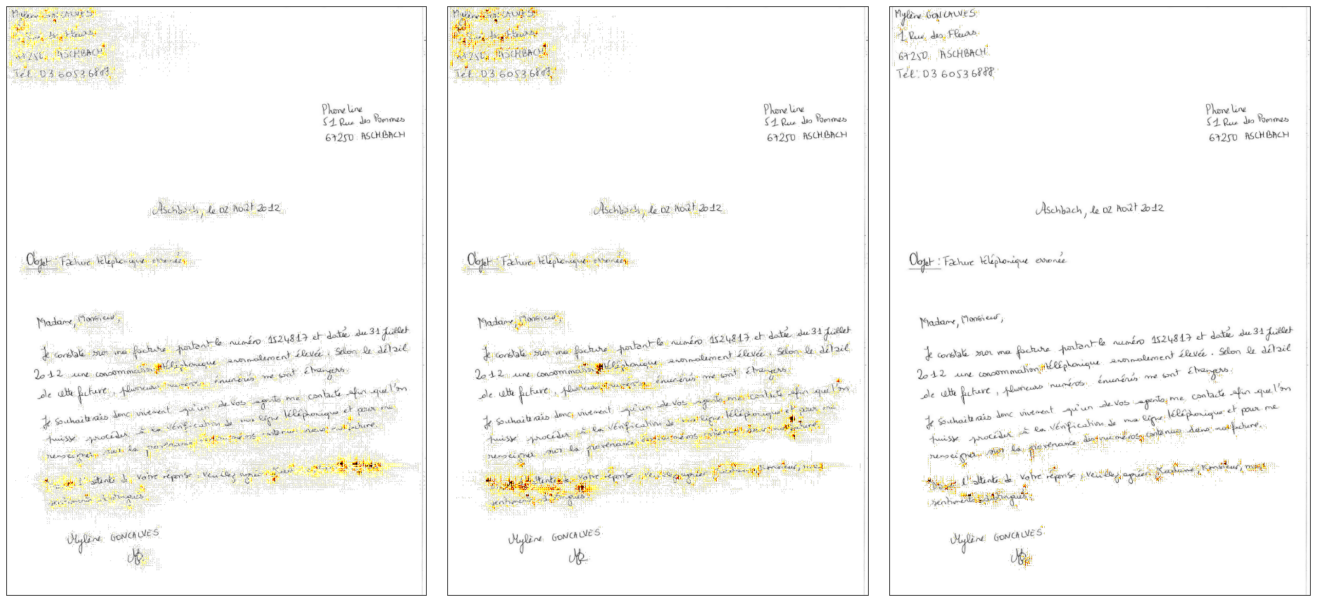 Mylène GONCALVES
Rue des Fleurs
67250, ASCHBACH
Tél: 03 60536888
Phone Line
51 Rue des Pommes
67250 ASCHBACH
Aschbach, le 02 Août 2012
Objet : Facture téléphonique erronée
Madame, Monsieur,
Je constate sur ma facture portant le numéro 1524817 et datée du 31 Juillet
2012 une consommation téléphonique anormalement élevée. Selon le détail
de cette facture, plusieurs numéros énumérés me sont étrangers.
Je souhaiterais donc vivement qu'un de vos agents me contacte afin que l'on
puisse procéder à la vérification de ma ligne téléphonique et pour me
renseigner sur la provenance des numéros contenus dans ma facture.
l'attente de votre réponse, veuillez agréer
sentiments distingués
Mylène GONCALVES
Mylène GONCALVES
Rue des Fleurs
67250, ASCHBACH
Tél: 03 60536888
Phone Line
51 Rue des Pommes
67250 ASCHBACH
Aschbach, le 02 Août 2012
Objet : Facture téléphonique erronée
Madame, Monsieur,
Je constate sur ma facture portant le numéro 1524817 et datée du 31 Juillet
2012 une consommation téléphonique anormalement élevée. Selon le détail
de cette facture, plusieurs numéros énumérés me sont étrangers.
Je souhaiterais donc vivement qu'un de vos agents me contacte afin que l'on
puisse procéder à la vérification de ma ligne téléphonique et pour me
renseigner sur la provenance des numéros contenus dans ma facture.
l'attente de votre réponse, veuillez agréer Madame, Monsieur, mes
sentiments distingués.
Mylène GONCALVES
Mylène GONCALVES
1 Rue des Fleurs
67250, ASCHBACH
Tél: 03 60536888
Phone Line
51 Rue des Pommes
67250 ASCHBACH
Aschbach, le 02 Août 2012
Objet : Facture téléphonique erronée
Madame, Monsieur,
Je constate sur ma facture portant le numéro 1524817 et datée du 31 Juillet
2012 une consommation téléphonique anormalement élevée. Selon le détail
de cette facture, plusieurs numéros énumérés me sont étrangers.
Je souhaiterais donc vivement qu'un de vos agents me contacte afin que l'on
puisse procéder à la vérification de ma ligne téléphonique et pour me
renseigner sur la provenance des numéros contenus dans ma facture.
Dans l'attente de votre réponse, veuillez agréer Madame, Monsieur, mes
sentiments distingués.
Mylène GONCALVES